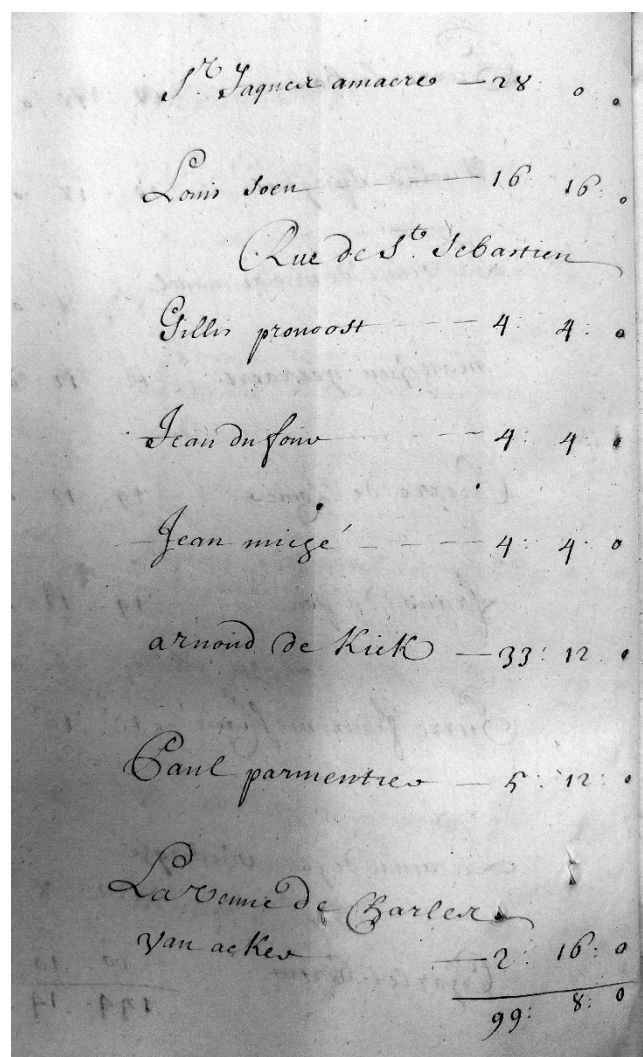 Sr. Jaques amacre — 28 0 0
Louis soen — 16 16: 0
Rue de Ste Sebastien
Gillis provoost — 4: 4: 0
Jean du four — 4: 4 0
Jean migé — 4: 4 0
arnoud de Kick — 33: 12 0
Paul parmentier — 5: 12: 0
La veuve de Charles
van acker — 2: 16: 0
99: 8: 0